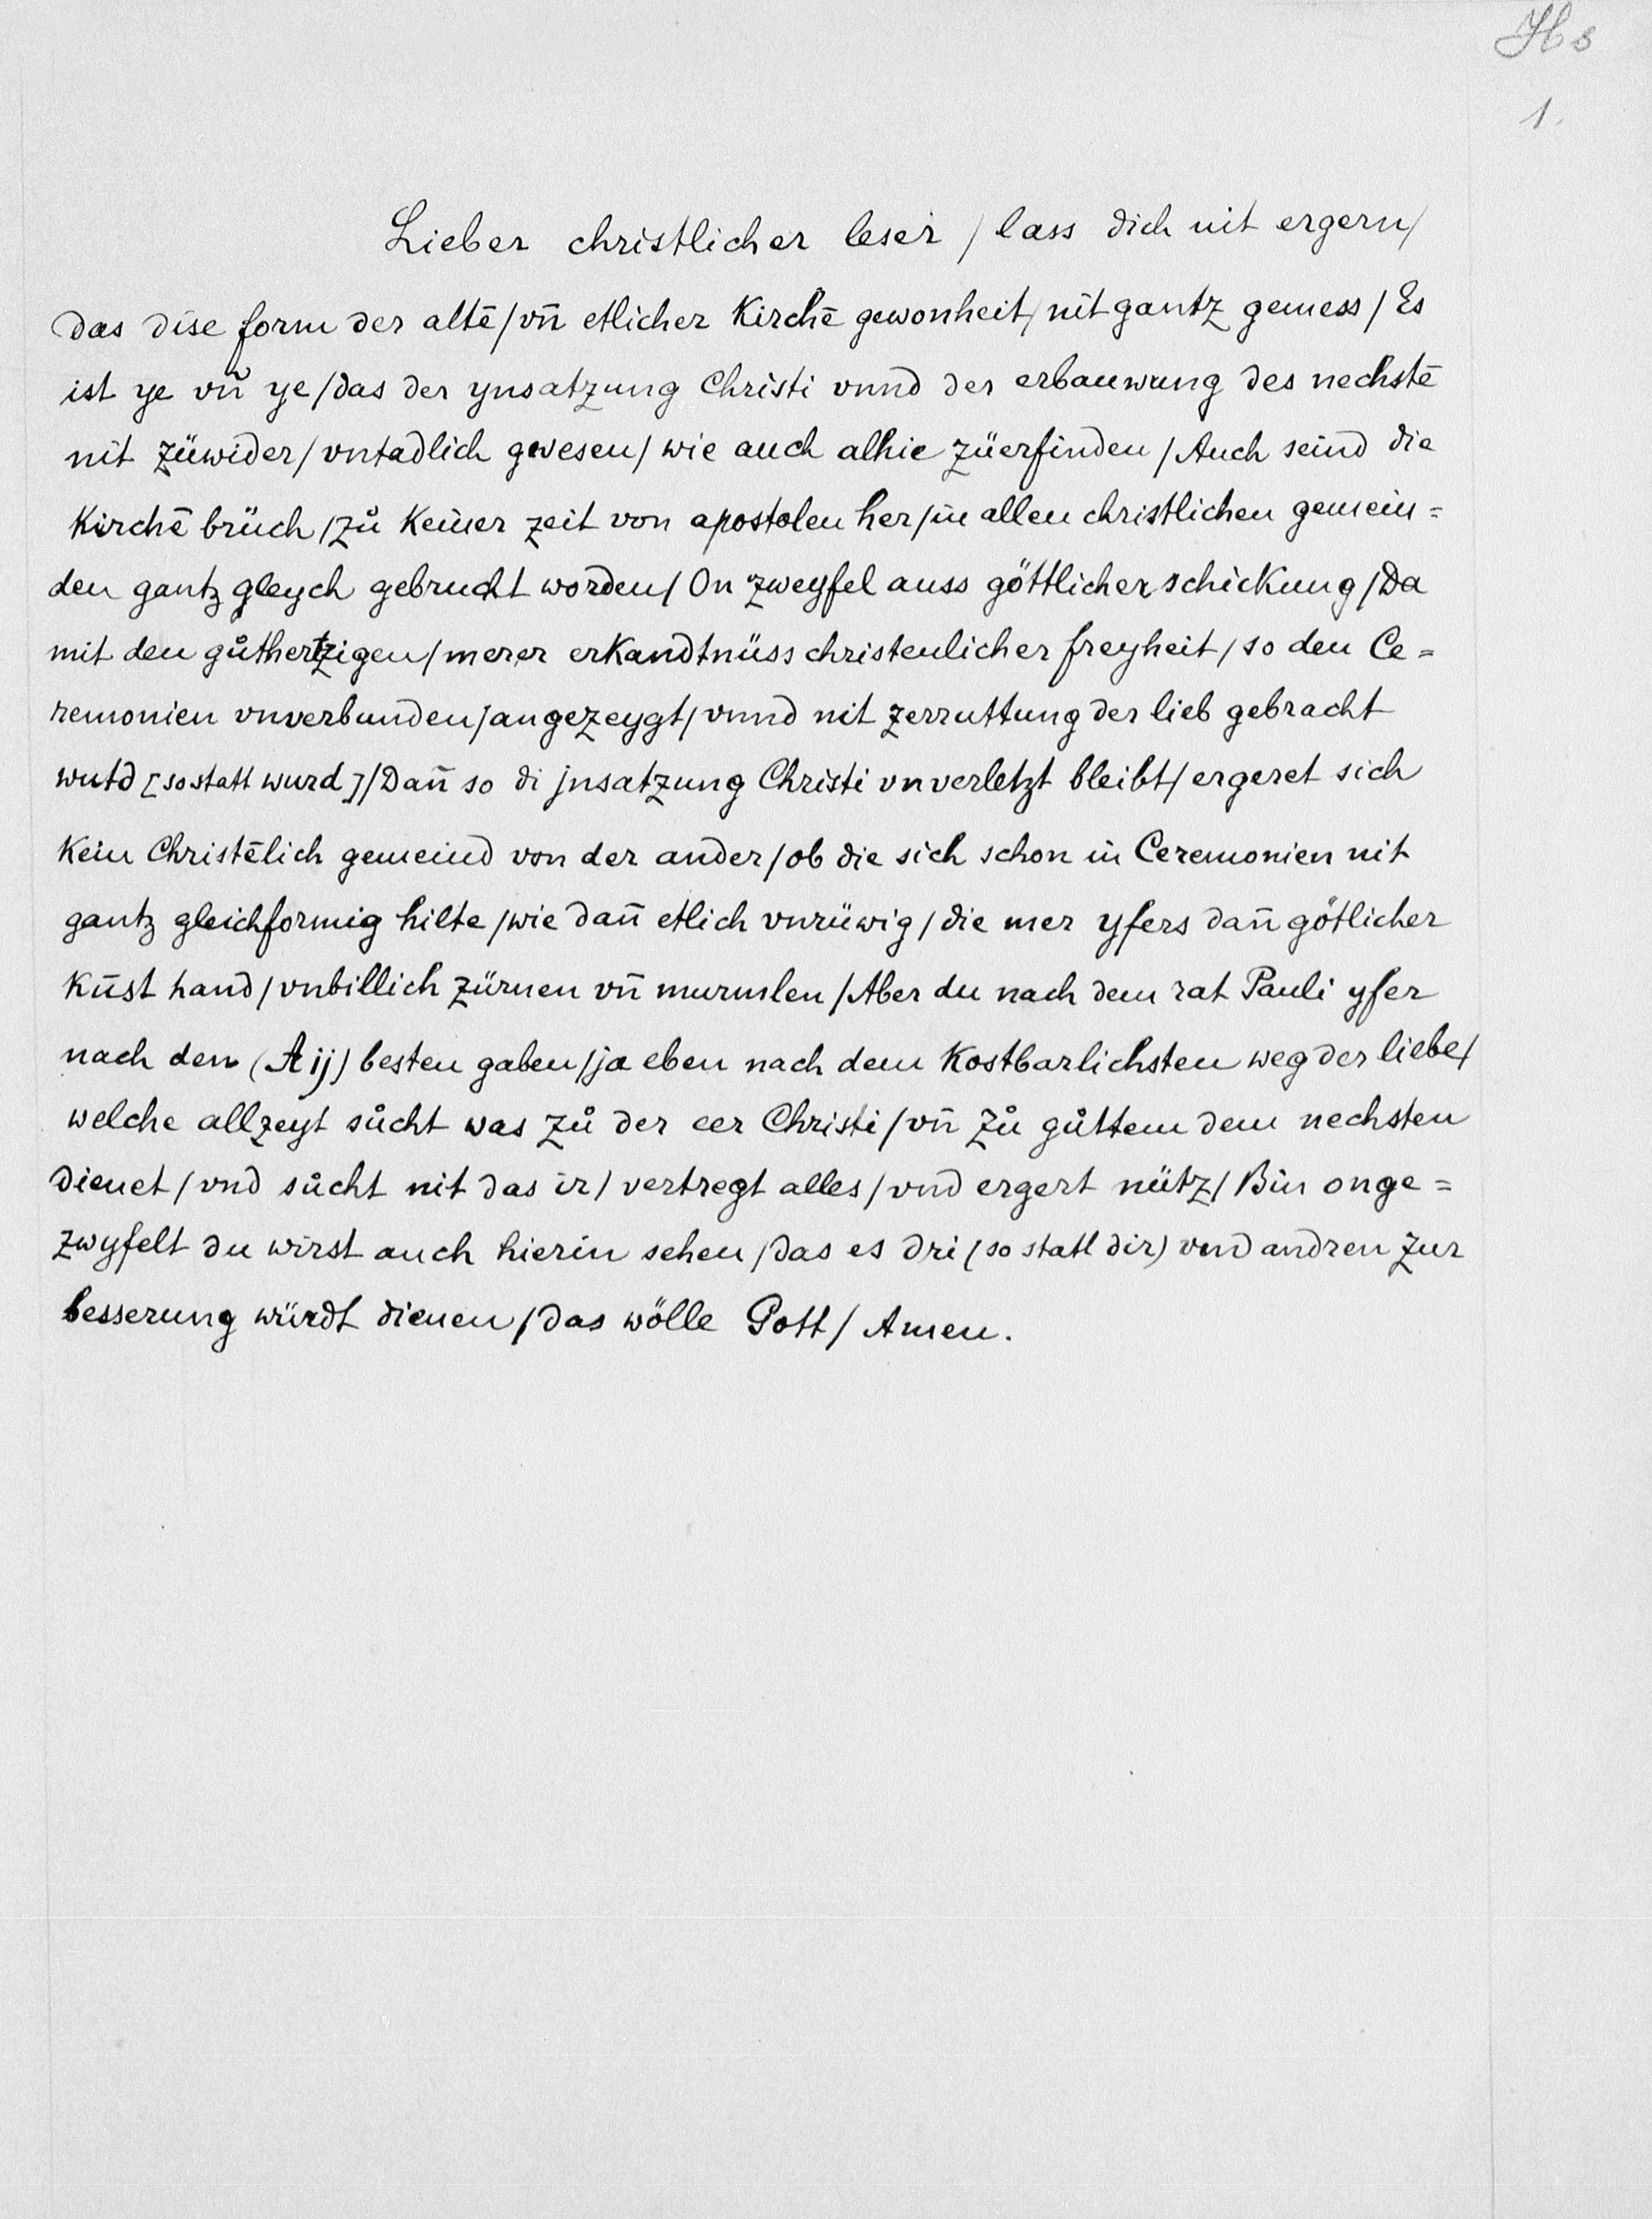 Hs
1.
Lieber christlicher leser / lass dich nit ergern /
das dise form der altē / vn̄ etlicher Kirchē gewonheit / nit gantz gemess / Es
ist ye vn̄ ye / das der ynsatzung Christi vnnd der erbauwung des nechstē
nit züwider / vntadlich gwesen / wie auch alhie züerfinden / Auch seind die
Kirchē brüch / zů Keiner zeit von apostolen her / in allen christlichen gemein=
den gantz gleych gebrucht worden / On zweyfel auss göttlicher schickung / Da
mit den gůthertzigen / merer erkandtnüss christenlicher freyheit / so den Ce=
remonien vnverbunden / angezeygt / vnnd nit zerruttung der lieb gebracht
wutd [so statt wurd] / Dan̄ so di jnsatzung Christi vnverletzt bleibt / ergeret sich
Kein Christēlich gemeind von der ander / ob die sich schon in Ceremonien nit
gantz gleichformig hilte / wie dan̄ etlich vnrüwig / die mer yfers dan̄ götlicher
Kūst hand / vnbillich zürnen vn̄ murmlen / Aber du nach dem rat Pauli yfer
nach den (A ij) besten gaben / ja eben nach dem Kostbarlichsten weg der liebe /
welche allzeyt sůcht was zů der eer Christi / vn̄ zů gůttem dem nechsten
dienet / vnd sůcht nit das ir / vertregt alles / vnd ergert nütz / Bin onge=
zwyfelt du wirst auch hierin sehen / das es dri (so statt dir) vnd andren zur
besserung würdt dienen / das wölle Gott / Amen.